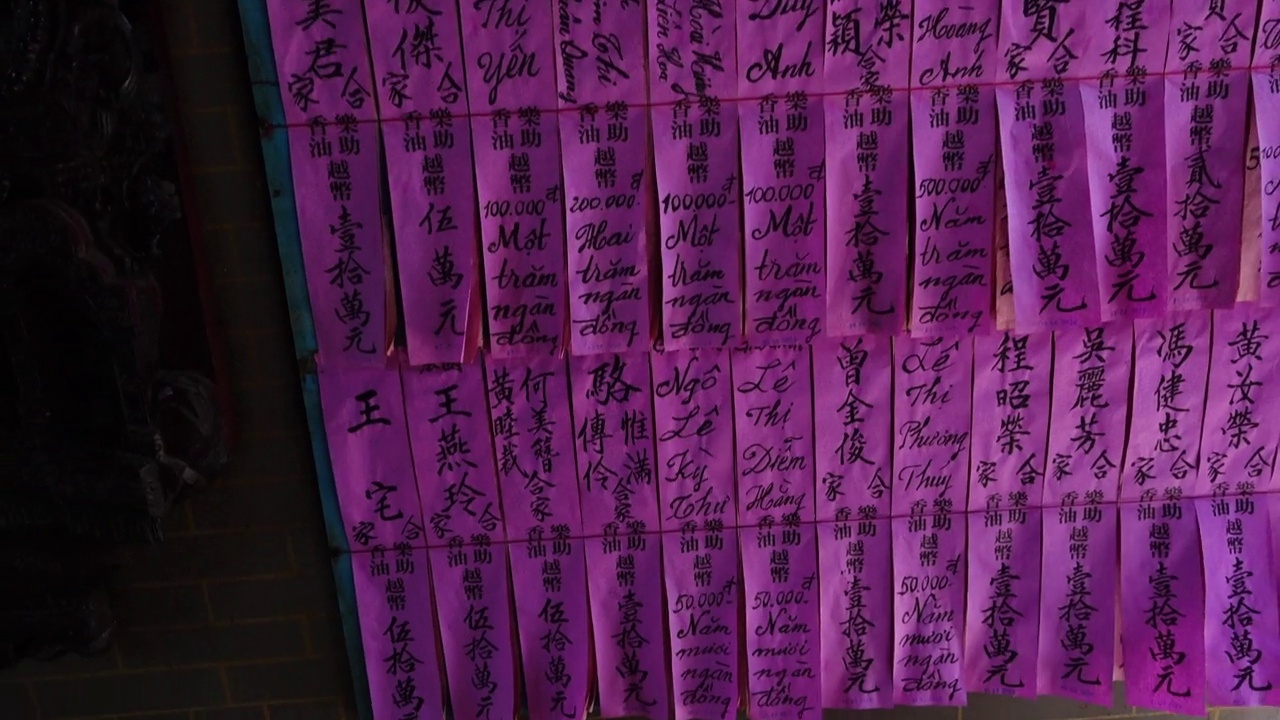 美君
合家
樂助
香油
越幣
壹拾萬元
俊傑
合家
樂助
香油
越幣
伍萬元
Thị
Yến
樂助
香油
越幣
100.000đ
Một
trăm
ngàn
đồng
樂助
香油
越幣
200.000đ
Hai
trăm
ngàn
đồng
樂助
香油
越幣
100000đ
Một
trăm
ngàn
đồng
Duy
Anh
樂助
香油
越幣
100.000đ
Một
trăm
ngàn
đồng
榮
穎
合家
樂助
香油
越幣
壹拾萬元
Hoàng
Anh
樂助
香油
越幣
500.000đ
Năm
trăm
ngàn
đồng
賢
合家
樂助
香油
越幣
壹拾萬元
程科
樂助
香油
越幣
壹拾萬元
合家
樂助
香油
越幣
貳拾萬元
王宅
合家
樂助
香油
越幣
伍拾萬元
王燕玲
合家
樂助
香油
越幣
伍拾萬元
何美簪
黃睦裁
合家
樂助
香油
越幣
伍拾萬元
駱
惟滿
傳伶
合家
樂助
香油
越幣
壹拾萬元
Ngô
Lê
Kỳ
Thư
樂助
香油
越幣
50.000đ
Năm
mươi
ngàn
đồng
Lê
Thị
Diễm
Hằng
樂助
香油
越幣
50.000đ
Năm
mươi
ngàn
đồng
曾金俊
合家
樂助
香油
越幣
壹拾萬元
Lê
Thị
Phương
Thúy
樂助
香油
越幣
50.000đ
Năm
mươi
ngàn
đồng
程昭榮
合家
樂助
香油
越幣
壹拾萬元
吳麗芳
合家
樂助
香油
越幣
壹拾萬元
馮健忠
合家
樂助
香油
越幣
壹拾萬元
黃汝榮
合家
樂助
香油
越幣
壹拾萬元